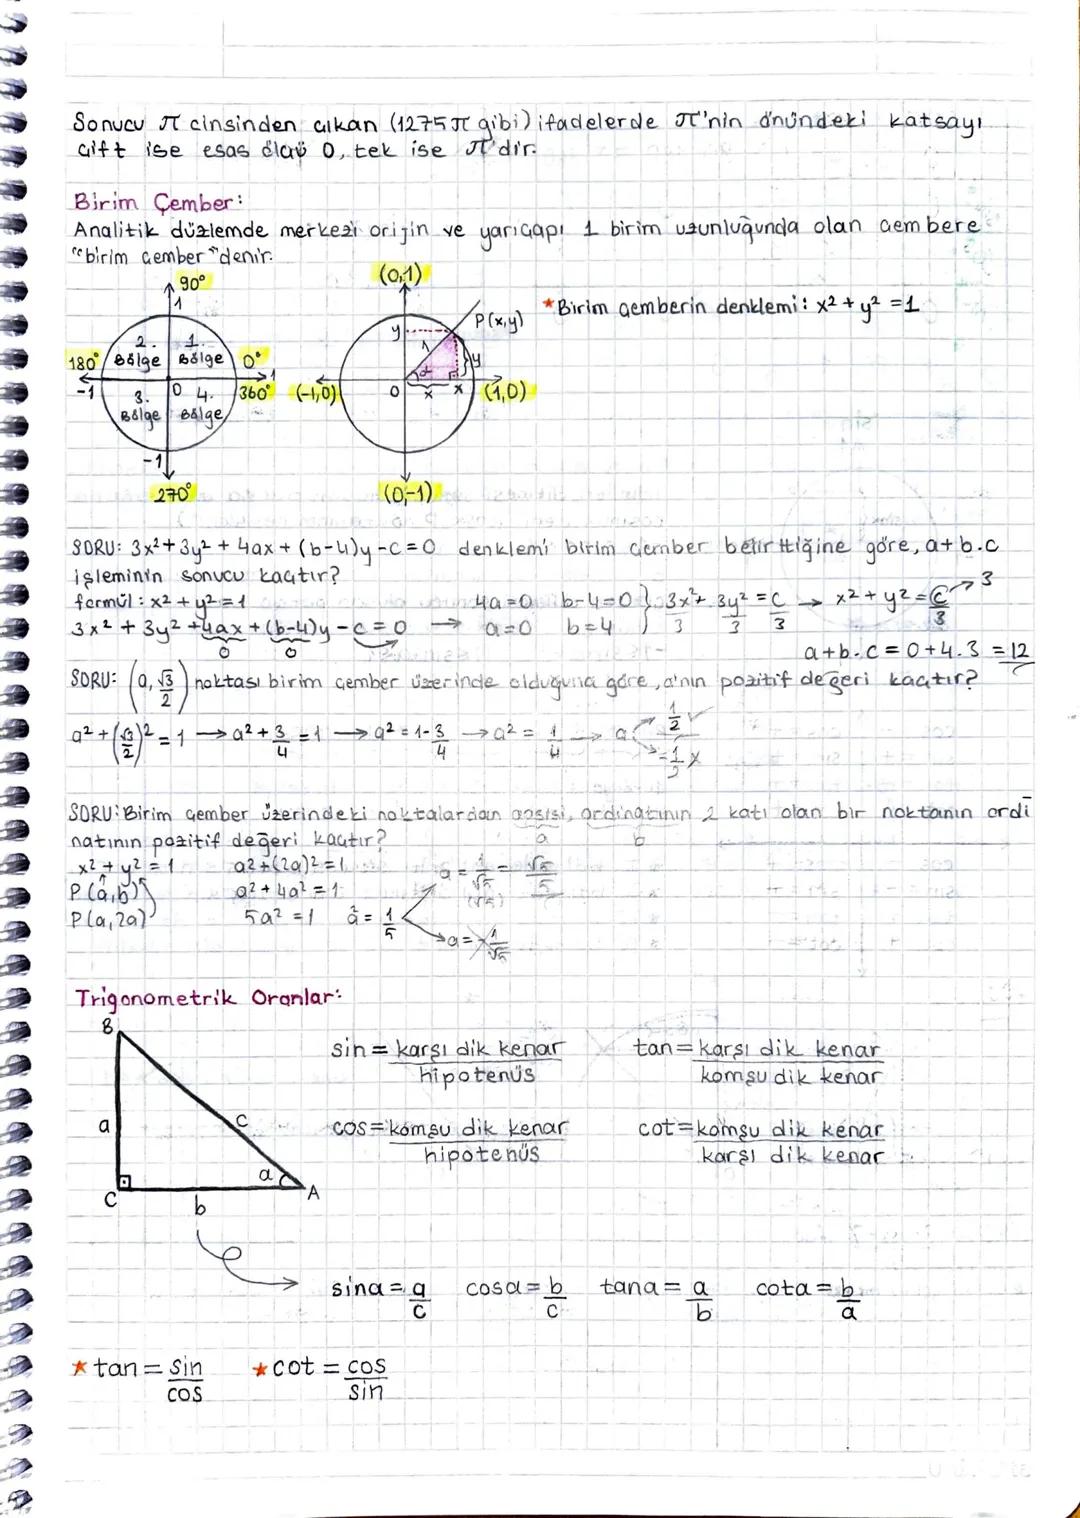 Sonucu π cinsinden çıkan (1275π gibi) ifadelerde π'nin önündeki katsayı
çift ise esas ölçü 0, tek ise π'dir.
Birim Çember:
Analitik düzlemde merkezi orijin ve yarıçapı 1 birim uzunluğunda olan çembere
"birim çember" denir.
90°
1
2. Bölge
1. Bölge
180°
0°
-1
1
0
360°
3. Bölge
4. Bölge
-1
270°
(0,1)
P(x,y)
y
1
α
y
(-1,0)
0
x
x
(1,0)
(0,-1)
*Birim çemberin denklemi: x² + y² = 1
SORU: 3x² + 3y² + 4ax + (b-4)y - c = 0 denklemi birim çember belirttiğine göre, a+b.c
işleminin sonucu kaçtır?
formül: x² + y² = 1 4a=0 b-4=0 } 3x²/3 + 3y²/3 = c/3 → x² + y² = c/3 → 3
3x² + 3y² + 4ax + (b-4)y - c = 0 → a=0 b=4
0 0
a+b.c = 0+4.3 = 12
SORU: (a, √3/2) noktası birim çember üzerinde olduğuna göre, a'nın pozitif değeri kaçtır?
a² + (√3/2)² = 1 → a² + 3/4 = 1 → a² = 1-3/4 → a² = 1/4 → a 1/2 ✓
-1/2 x
SORU: Birim çember üzerindeki noktalardan apsisi, ordinatının 2 katı olan bir noktanın ordi
natının pozitif değeri kaçtır? a b
x² + y² = 1 a² + (2a)² = 1 a = 1/√5 = √5/5
P(a,b) a² + 4a² = 1 (√5)
P(a,2a) 5a² = 1 a² = 1/5
a = -1/√5
Trigonometrik Oranlar:
B
a
c
C
b
α
A
sin = karşı dik kenar/hipotenüs tan = karşı dik kenar/komşu dik kenar
cos = komşu dik kenar/hipotenüs cot = komşu dik kenar/karşı dik kenar
sinα = a/c cosα = b/c tanα = a/b cotα = b/a
*tan = sin/cos *cot = cos/sin